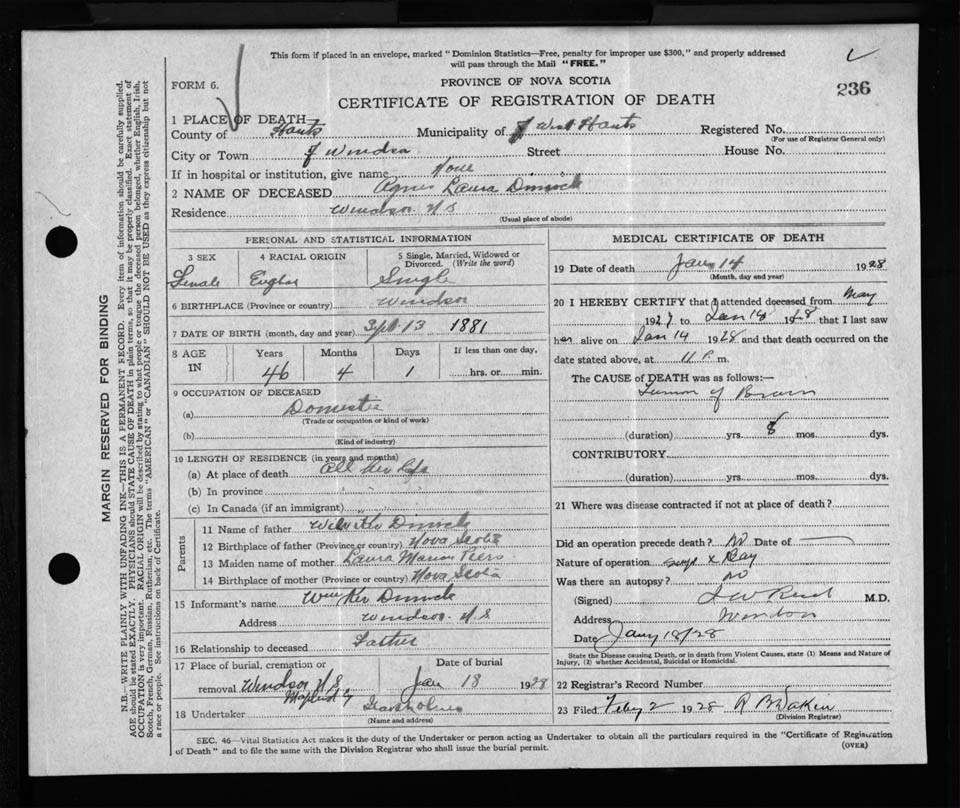 This form if placed in an envelope, marked "Dominion Statistics—Free, penalty for improper use $300," and properly addressed
will pass through the Mail "FREE."
FORM 6.
PROVINCE OF NOVA SCOTIA
236
CERTIFICATE OF REGISTRATION OF DEATH
1 PLACE OF DEATH
County of Hants Municipality of West Hants Registered No.
(For use of Registrar General only)
City or Town of Windsor Street House No.
If in hospital or institution, give name None
2 NAME OF DECEASED Agnes Laura Dimock
Residence Windsor N S
(Usual place of abode)
PERSONAL AND STATISTICAL INFORMATION
3 SEX 4 RACIAL ORIGIN 5 Single, Married, Widowed or Divorced. (Write the word)
Female English Single
6 BIRTHPLACE (Province or country) Windsor
7 DATE OF BIRTH (month, day and year) Sept. 13 1881
8 AGE IN Years Months Days If less than one day,
46 4 1 hrs. or min.
9 OCCUPATION OF DECEASED
(a) Domestic
(Trade or occupation or kind of work)
(b)
(Kind of industry)
10 LENGTH OF RESIDENCE (in years and months)
(a) At place of death All her life
(b) In province
(c) In Canada (if an immigrant)
Parents
11 Name of father Dimock
12 Birthplace of father (Province or country) Nova Scotia
13 Maiden name of mother Laura Marion
14 Birthplace of mother (Province or country) Nova Scotia
15 Informant's name Dimock
Address Windsor N S
16 Relationship to deceased Father
17 Place of burial, cremation or Date of burial
removal Windsor N S Jan 18 1928
18 Undertaker
(Name and address)
MEDICAL CERTIFICATE OF DEATH
19 Date of death Jany 14 1928
(Month, day and year)
20 I HEREBY CERTIFY that I attended deceased from May
1927 to Jan 14 1928 that I last saw
her alive on Jan 14 1928 and that death occurred on the
date stated above, at 11 P. m.
The CAUSE of DEATH was as follows:—
Tumor of Brain
(duration) yrs. 8 mos. dys.
CONTRIBUTORY
(duration) yrs. mos. dys.
21 Where was disease contracted if not at place of death?
Did an operation precede death? No Date of
Nature of operation X Ray
Was there an autopsy? no
(Signed) Reid M.D.
Address Windsor
Date Jany 18/28
State the Disease causing Death, or in death from Violent Causes, state (1) Means and Nature of
Injury, (2) whether Accidental, Suicidal or Homicidal.
22 Registrar's Record Number
23 Filed Feby 2 1928 R B Dakin
(Division Registrar)
SEC. 46—Vital Statistics Act makes it the duty of the Undertaker or person acting as Undertaker to obtain all the particulars required in the "Certificate of Registration
of Death" and to file the same with the Division Registrar who shall issue the burial permit.
(OVER)
MARGIN RESERVED FOR BINDING
N.B.—WRITE PLAINLY WITH UNFADING INK—THIS IS A PERMANENT RECORD. Every item of information should be carefully supplied.
AGE should be stated EXACTLY. PHYSICIANS should STATE CAUSE OF DEATH in plain terms, so that it may be properly classified. Exact statement of
OCCUPATION is very important. RACIAL ORIGIN will be described by stating to what people or tongue the deceased person belonged, whether English, Irish,
Scotch, French, German, Russian, Ruthenian, etc. The terms "AMERICAN" or "CANADIAN" SHOULD NOT BE USED as they express citizenship but not
a race or people. See instructions on back of Certificate.